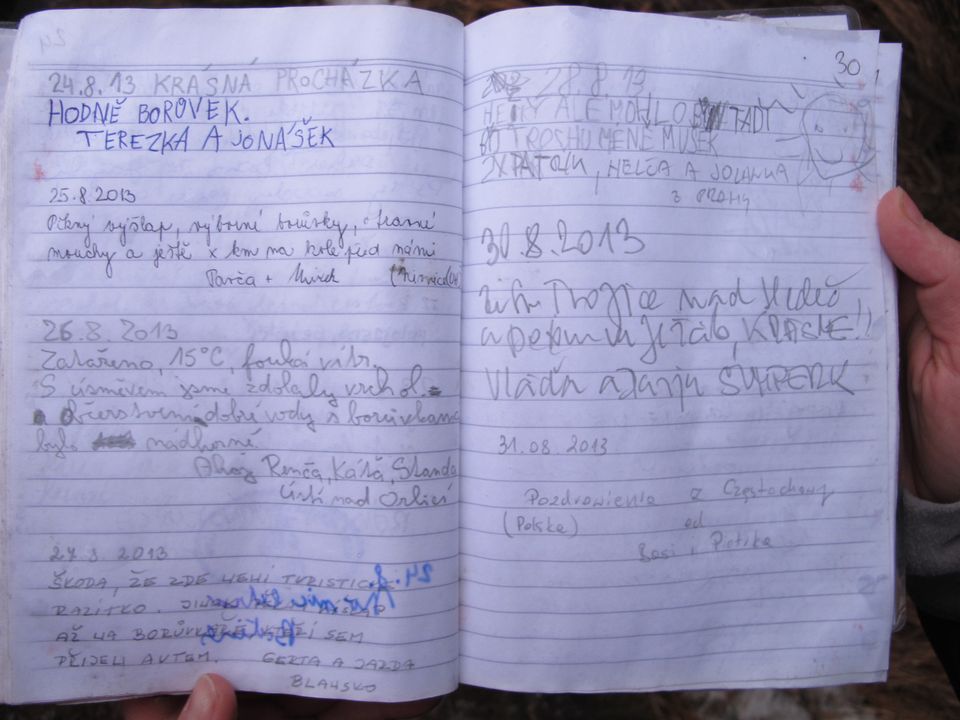 24.8.13 KRÁSNÁ PROCHÁZKA
HODNĚ BORŮVEK.
TEREZKA A JONÁŠEK
25.8.2013
Pěkný výšlap, výborné borůvky, otravné
mouchy a ještě x km na kole před námi
Parča + Mirek
26.8. 2013
Zataženo, 15°C, fouká vítr.
S úsměvem jsme zdolaly vrchol
a občerstvení dobré vody s borůvkama
bylo nádherné
Ahoj Renča, Káťa, Standa
Ústí nad Orlicí
27 8. 2013
ŠKODA, ŽE ZDE NENÍ TURISTICKÉ
RAZÍTKO.
AŽ NA BORŮVKÁŘE, KTEŘÍ SEM
PŘIJELI AUTEM. GERTA A JARDA
BLANSKO
30
28.8.13
HEZKY ALE MOHLO BÝT TADY
TROSHU MÉNĚ MUŠEK
2X PATOLK, HELČA A JOLANKA
z PRAHY
30.8.2013
Trojice nad
a potom Jeřáb, KRÁSNÉ!!
Vláďa a Jarja ŠUMPERK
31.08.2013
Pozdrowienia z Częstochowy
(Polska) od
Basi i Piotrka